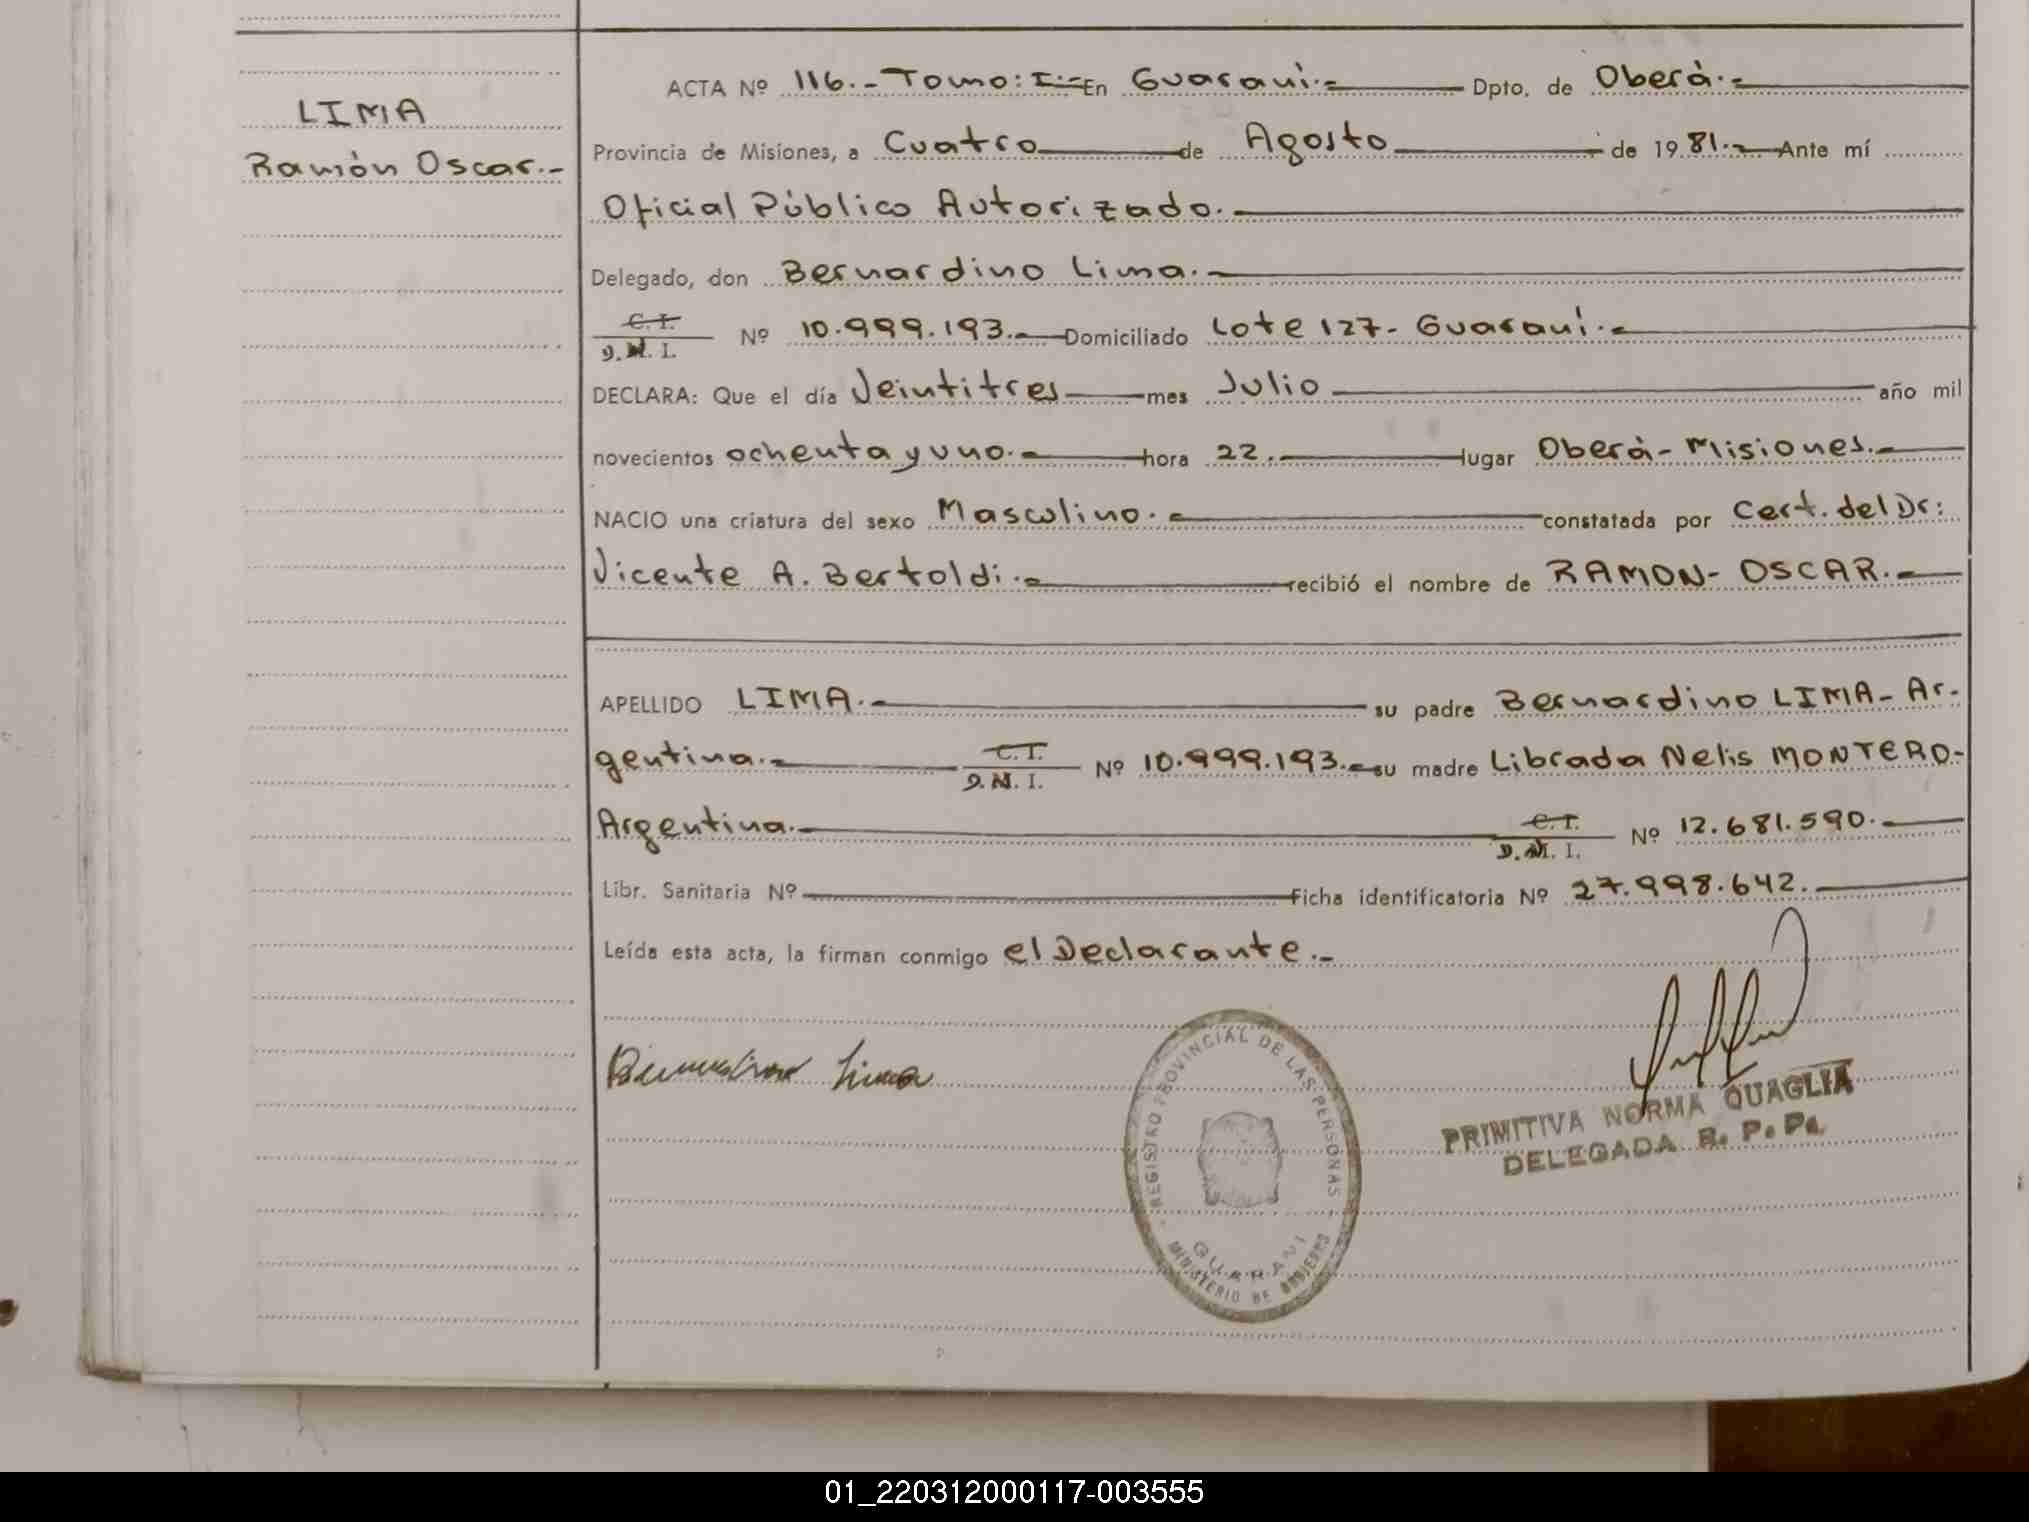 LIMA
Ramón Oscar.-
ACTA Nº 116.- Tomo: I.- En Guaraní.- Dpto. de Oberá.-
Provincia de Misiones, a Cuatro de Agosto de 1981.- Ante mí
Oficial Público Autorizado.-
Delegado, don Bernardino Lima.-
C. I.
D. N. I. Nº 10.999.193.- Domiciliado Lote 127- Guaraní.-
DECLARA: Que el día Veintitres mes Julio año mil
novecientos ochenta y uno.- hora 22.- lugar Oberá- Misiones.-
NACIO una criatura del sexo Masculino.- constatada por Cert. del Dr:
Vicente A. Bertoldi.- recibió el nombre de RAMON- OSCAR.-
APELLIDO LIMA.- su padre Bernardino LIMA- Ar-
gentina.- C. I. D. N. I. Nº 10.999.193.- su madre Librada Nelis MONTERO-
Argentina.- C. I. D. N. I. Nº 12.681.590.-
Libr. Sanitaria Nº Ficha identificatoria Nº 27.998.642.-
Leída esta acta, la firman conmigo el Declarante.-
Bernardino Lima
REGISTRO PROVINCIAL DE LAS PERSONAS
GUARANI
MINISTERIO DE GOBIERNO
PRIMITIVA NORMA QUAGLIA
DELEGADA R. P. P.
01_220312000117-003555